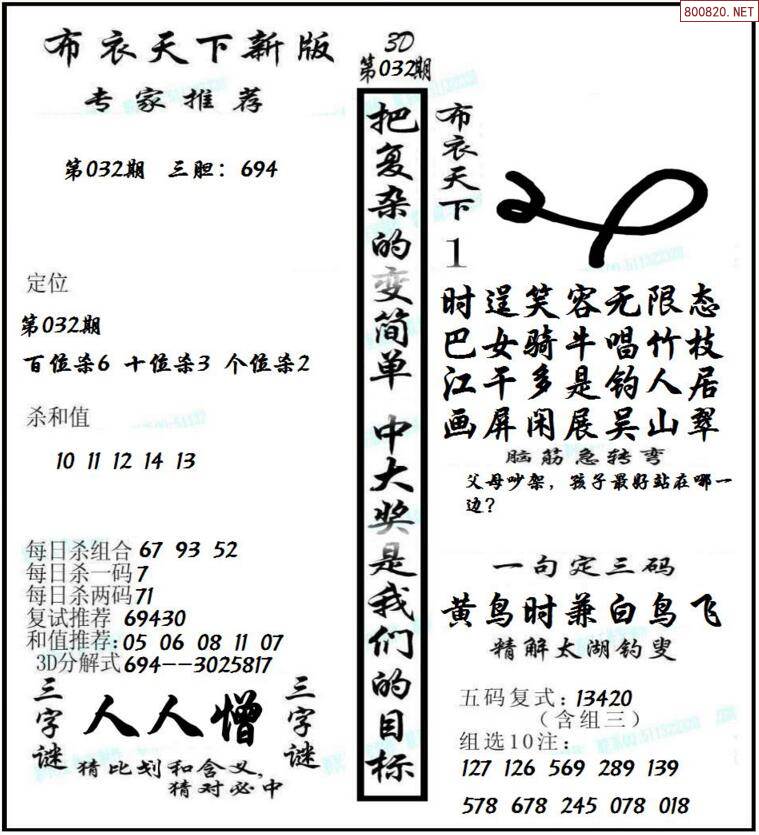 800820.NET
布衣天下新版
专家推荐
第032期 三胆：694
定位
第032期
百位杀6 十位杀3 个位杀2
杀和值
10 11 12 14 13
每日杀组合 67 93 52
每日杀一码 7
每日杀两码 71
复试推荐 69430
和值推荐: 05 06 08 11 07
3D分解式 694--3025817
三字谜
人人憎
三字谜
猜比划和含义,
猜对必中
3D
第032期
把复杂的变简单 中大奖是我们的目标
布衣天下1
时逞笑容无限态
巴女骑牛唱竹枝
江干多是钓人居
画屏闲展吴山翠
脑筋急转弯
父母吵架，孩子最好站在哪一
边？
一句定三码
黄鸟时兼白鸟飞
精解太湖钓叟
五码复式：13420
（含组三）
组选10注：
127 126 569 289 139
578 678 245 078 018